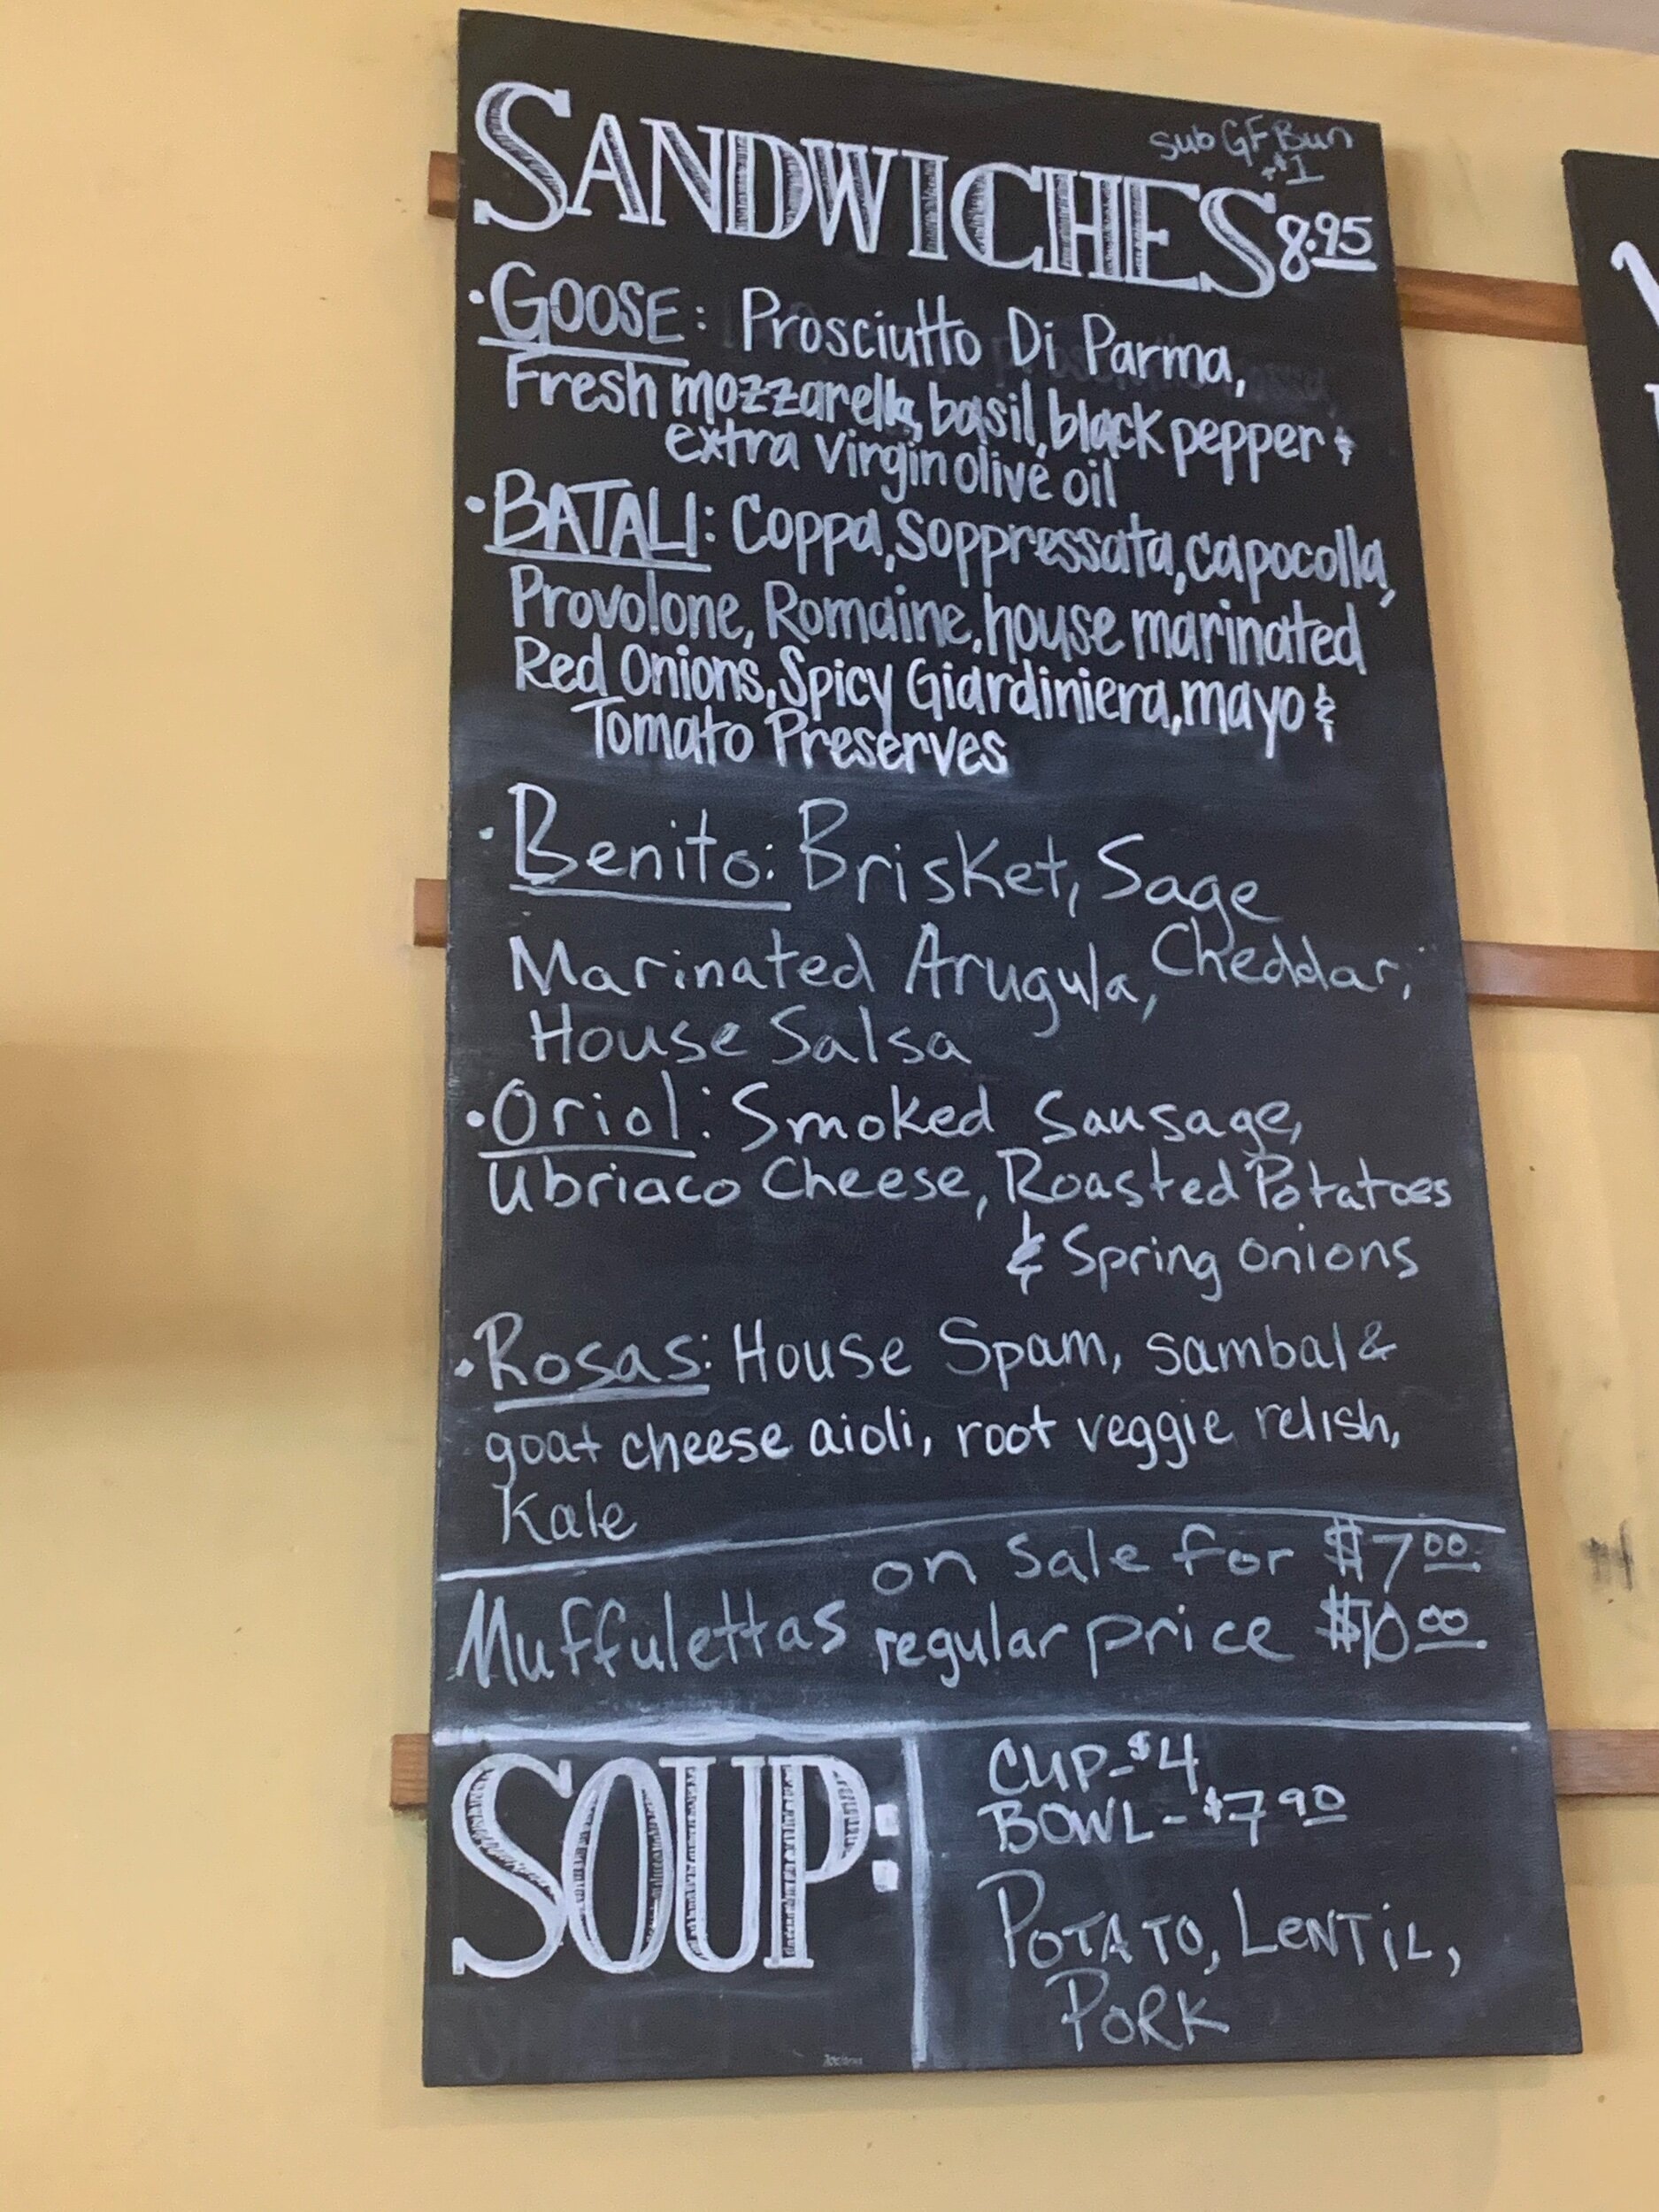 Sub GF Bun
+$1
SANDWICHES 8.95
• GOOSE: Prosciutto Di Parma,
Fresh mozzarella, basil, black pepper &
extra virgin olive oil
• BATALI: Coppa, Soppressata, capocolla,
Provolone, Romaine, house marinated
Red Onions, Spicy Giardiniera, mayo &
Tomato Preserves
• Benito: Brisket, Sage
Marinated Arugula, Cheddar,
House Salsa
• Oriol: Smoked Sausage,
Ubriaco Cheese, Roasted Potatoes
& Spring onions
• Rosas: House Spam, sambal &
goat cheese aioli, root veggie relish,
Kale
on Sale for $7.00
Muffulettas regular price $10.00
SOUP:
CUP-$4
BOWL-$7.90
POTATO, LENTiL,
PORK